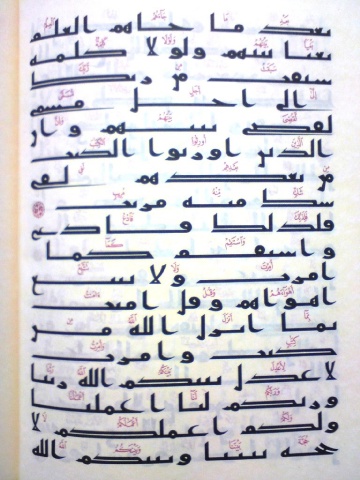 بعد ما جاهم العلم
بغيا بينهم ولولا كلمة
سبقت من ربك
الى اجل مسمى
لقضي بينهم وان
الذين اورثوا الكتب
من بعدهم لفي
شك منه مريب
فلذلك فادع
واستقم كما
امرت ولا تتبع
اهواهم وقل امنت
بما انزل الله من
كتب وامرت
لاعدل بينكم الله ربنا
وربكم لنا اعملنا
ولكم اعملكم لا
حجة بيننا وبينكم الله